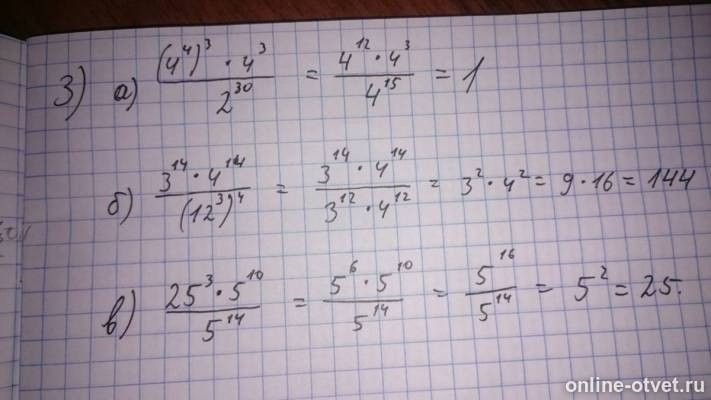 3) а) ((4⁴)³ · 4³)/2³⁰ = (4¹² · 4³)/4¹⁵ = 1
б) (3¹⁴ · 4¹⁴)/(12³)⁴ = (3¹⁴ · 4¹⁴)/(3¹² · 4¹²) = 3² · 4² = 9 · 16 = 144
в) (25³ · 5¹⁰)/5¹⁴ = (5⁶ · 5¹⁰)/5¹⁴ = 5¹⁶/5¹⁴ = 5² = 25.
online-otvet.ru